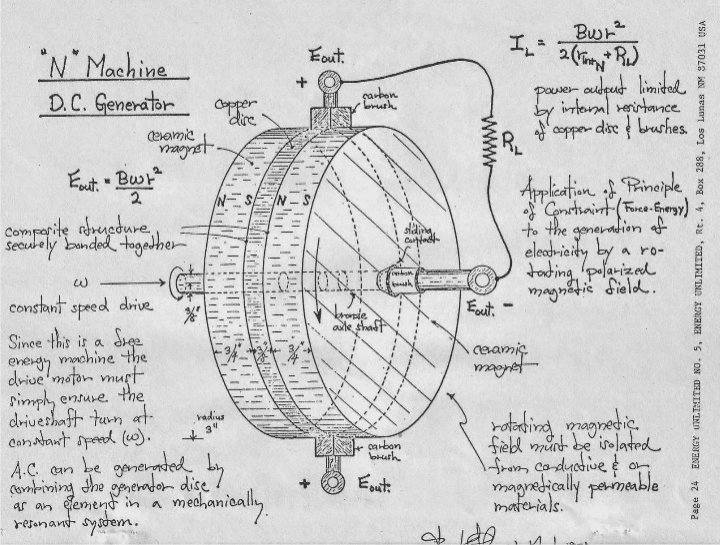 "N" Machine
D.C. Generator
Eout. = Bωr²/2
composite structure
securely bonded together
ω
constant speed drive
Since this is a free
energy machine the
drive motor must
simply ensure the
driveshaft turn at
constant speed (ω).
A.C. can be generated by
combining the generator disc
as an element in a mechanically
resonant system.
Eout.
+
carbon
brush
copper
disc
ceramic
magnet
N S N S
sliding
contact
carbon
brush
bronze
axle shaft
3/8"
3/4" 3/8" 3/4"
radius
3"
carbon
brush
+ Eout.
RL
Eout. -
ceramic
magnet
IL = Bωr²/2(rintN + RL)
power output limited
by internal resistance
of copper disc & brushes.
Application of Principle
of Constraint (Force-Energy)
to the generation of
electricity by a ro-
tating polarized
magnetic field.
rotating magnetic
field must be isolated
from conductive & or
magnetically permeable
materials.
Page 24 ENERGY UNLIMITED NO. 5, ENERGY UNLIMITED, Rt. 4, Box 288, Los Lunas NM 87031 USA